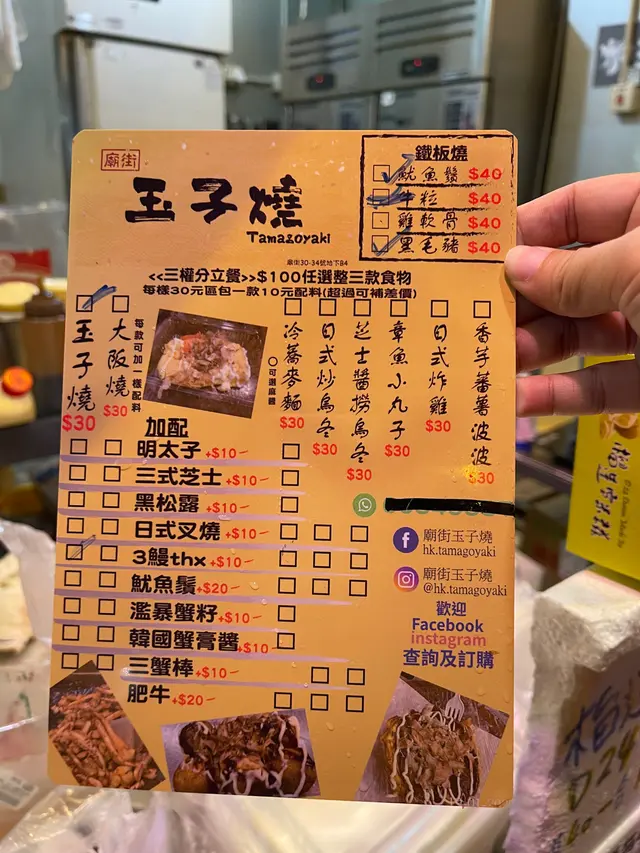 廟街
玉子燒
Tamagoyaki
鐵板燒
魷魚鬚 $40
牛粒 $40
雞軟骨 $40
黑毛豬 $40
廟街30-34號地下B4
<<三權分立餐>>$100任選整三款食物
每樣30元區包一款10元配料(超過可補差價)
玉子燒 $30
大阪燒 $30
每款可加一樣配料
○可選麻醬
冷蕎麥麵 $30
日式炒烏冬 $30
芝士醬撈烏冬 $30
章魚小丸子 $30
日式炸雞 $30
香芋蕃薯波波 $30
加配
明太子+$10
三式芝士+$10
黑松露+$10
日式叉燒+$10
3鰻thx+$10
魷魚鬚+$20
濫暴蟹籽+$10
韓國蟹膏醬+$10
三蟹棒+$10
肥牛+$20
廟街玉子燒
hk.tamagoyaki
廟街玉子燒
@hk.tamagoyaki
歡迎
Facebook
instagram
查詢及訂購